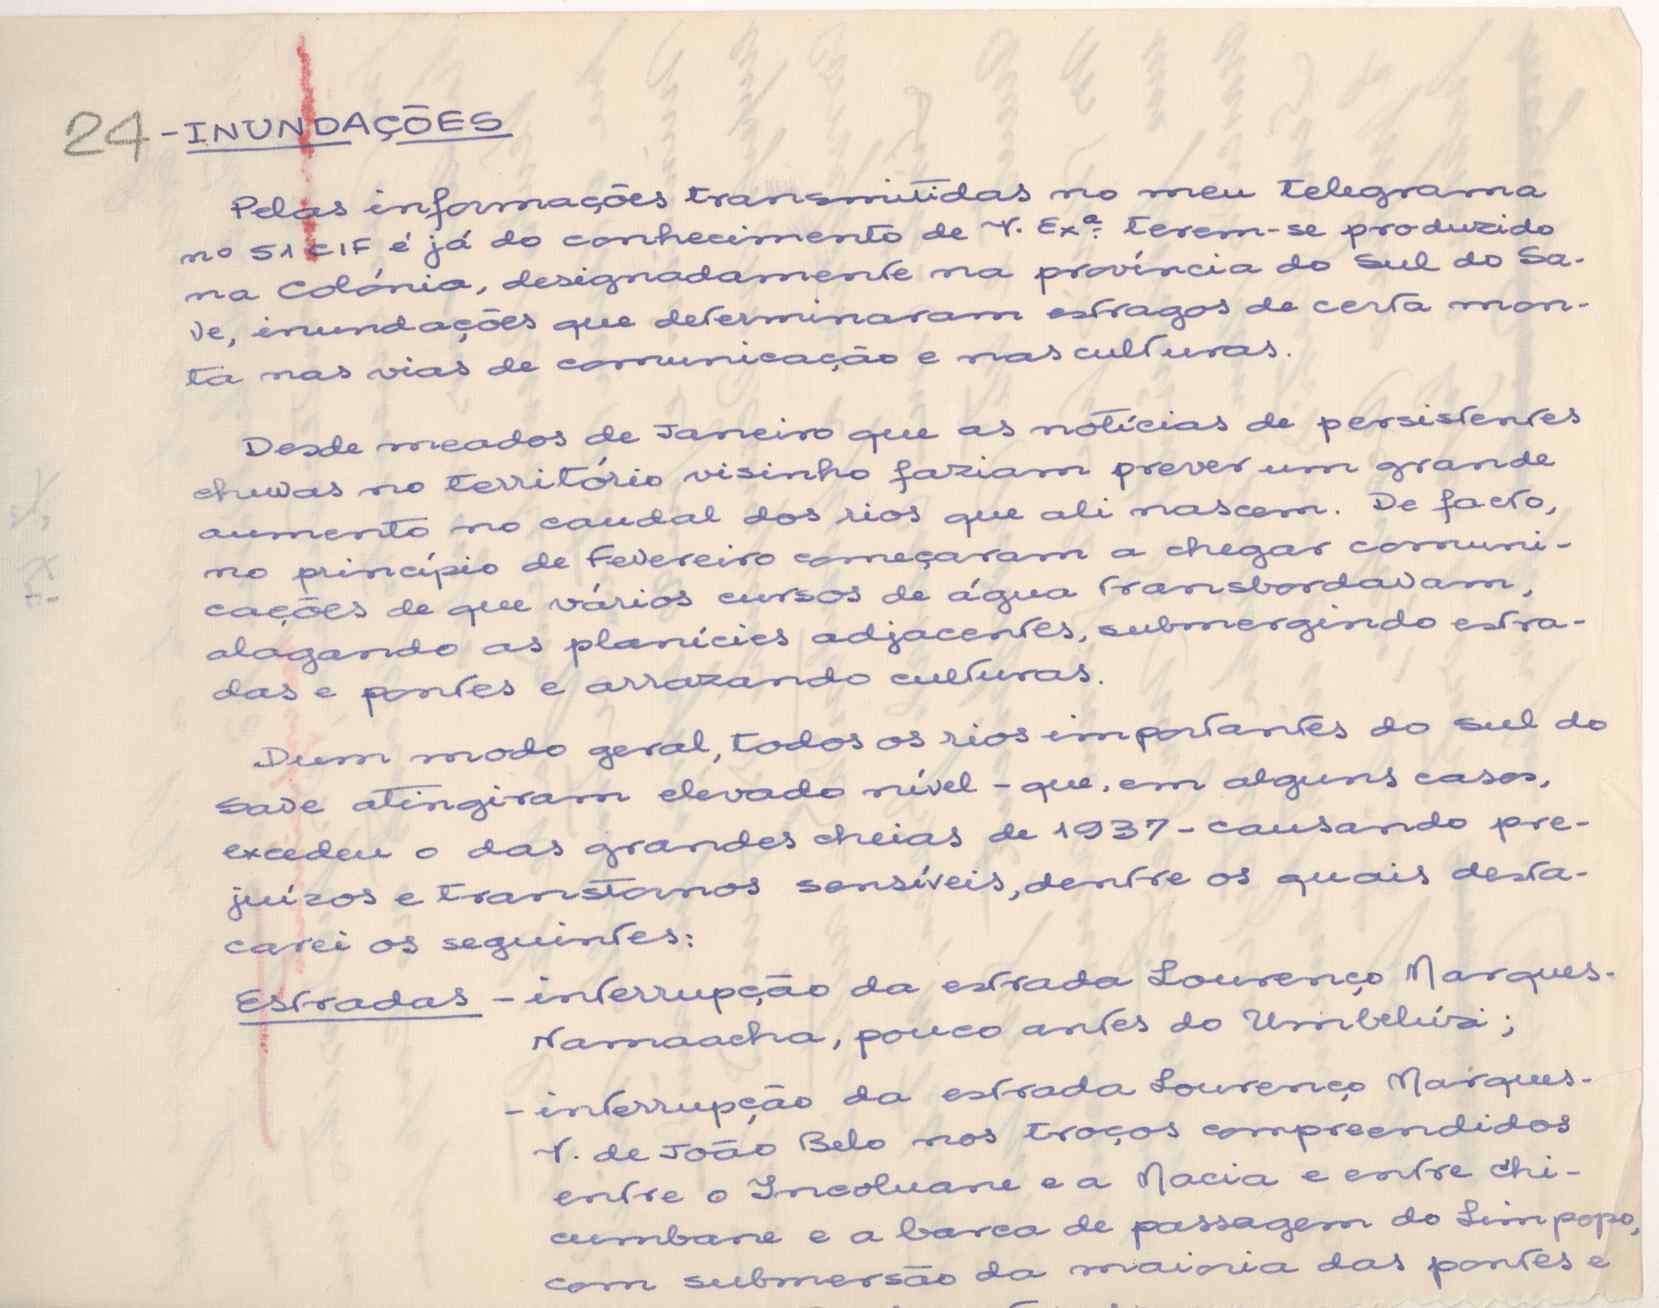 24 - INUNDAÇÕES
Pelas informações transmitidas no meu telegrama
nº 51 CIF é já do conhecimento de V. Exª. terem-se produzido
na Colónia, designadamente na província do Sul do Sa-
ve, inundações que determinaram estragos de certa mon-
ta nas vias de comunicação e nas culturas.
Desde meados de Janeiro que as notícias de persistentes
chuvas no território visinho faziam prever um grande
aumento no caudal dos rios que ali nascem. De facto,
no princípio de Fevereiro começaram a chegar comuni-
cações de que vários cursos de água transbordavam,
alagando as planícies adjacentes, submergindo estra-
das e pontes e arrazando culturas.
Dum modo geral, todos os rios importantes do Sul do
Save atingiram elevado nível - que, em alguns casos,
excedeu o das grandes cheias de 1937 - causando pre-
juízos e transtornos sensíveis, dentre os quais desta-
carei os seguintes:
Estradas - interrupção da estrada Lourenço Marques-
Namaacha, pouco antes do Umbelúzi;
- interrupção da estrada Lourenço Marques-
V. de João Belo nos troços compreendidos
entre o Incoluane e a Macia e entre Chi-
cumbane e a barca de passagem do Limpopo,
com submersão da maioria das pontes e